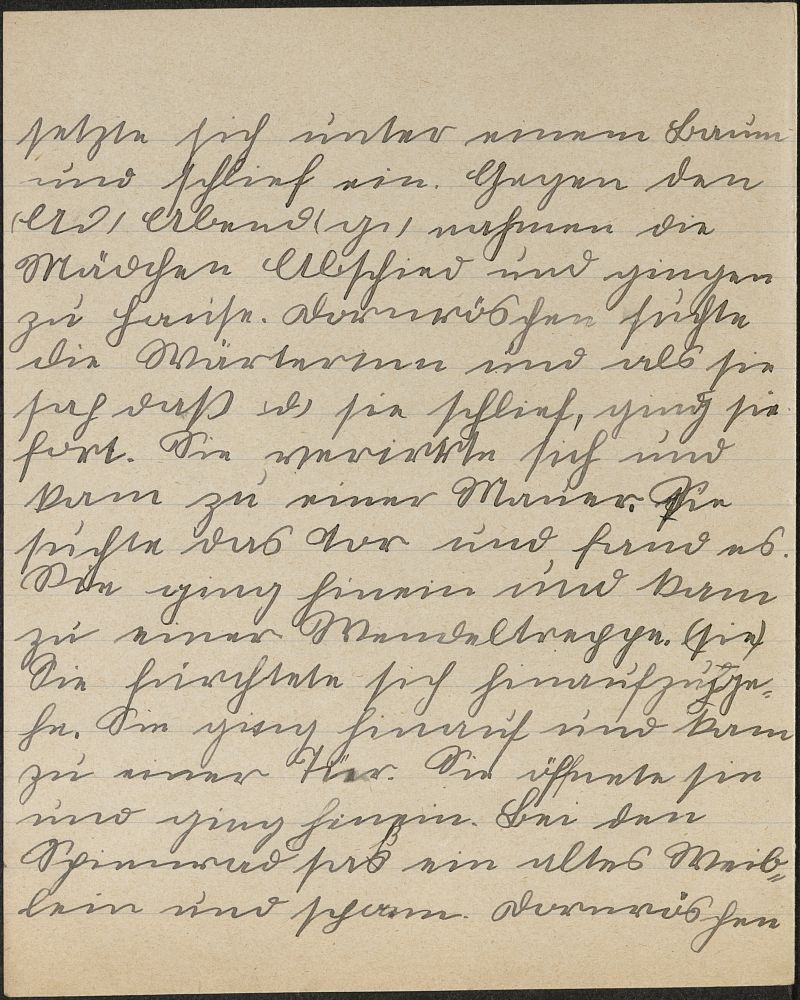 setzte sich unter einem Baum
und schlief ein. Gegen den
(Ad) Abend(g.) nahmen die
Mädchen Abschied und gingen
zu Hause. Dornröschen suchte
die Wärterinn und als sie
sah daß (d) sie schlief, ging sie
fort. Sie verirrte sich und
kam zu einer Mauer. Sie
suchte das Tor und fand es.
Sie ging hinein und kam
zu einer Wendeltreppe. (sie)
Sie fürchtete sich hinaufzuge-
he. Sie ging hinauf und kam
zu einer Tür. Sie öffnete sie
und ging hinein. Bei den
Spinnrad saß ein altes Weib-
lein und spann. Dornröschen